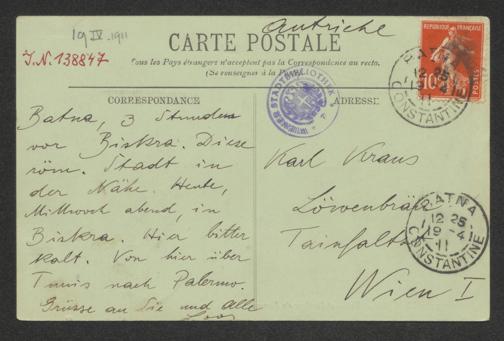 19 IV. 1911
Autriche
I.N. 138847
CARTE POSTALE
Tous les Pays étrangers n'acceptent pas la Correspondance au recto.
(Se renseigner à la
CORRESPONDANCE
ADRESSE
Batna, 3 Stunden
vor Biskra. Diese
röm. Stadt in
der Nähe. Heute,
Mittwoch abend, in
Biskra. Hier bitter
kalt. Von hier über
Tunis nach Palermo.
Grüsse an Sie und Alle
Loos
Karl Kraus
Löwenbräu
Tainfalts
Wien I
WIENER STADTBIBLIOTHEK
REPUBLIQUE FRANÇAISE
10
POSTES
BATNA
12 25
19 - 4
11
CONSTANTINE
BATNA
12 25
19 - 4
11
CONSTANTINE